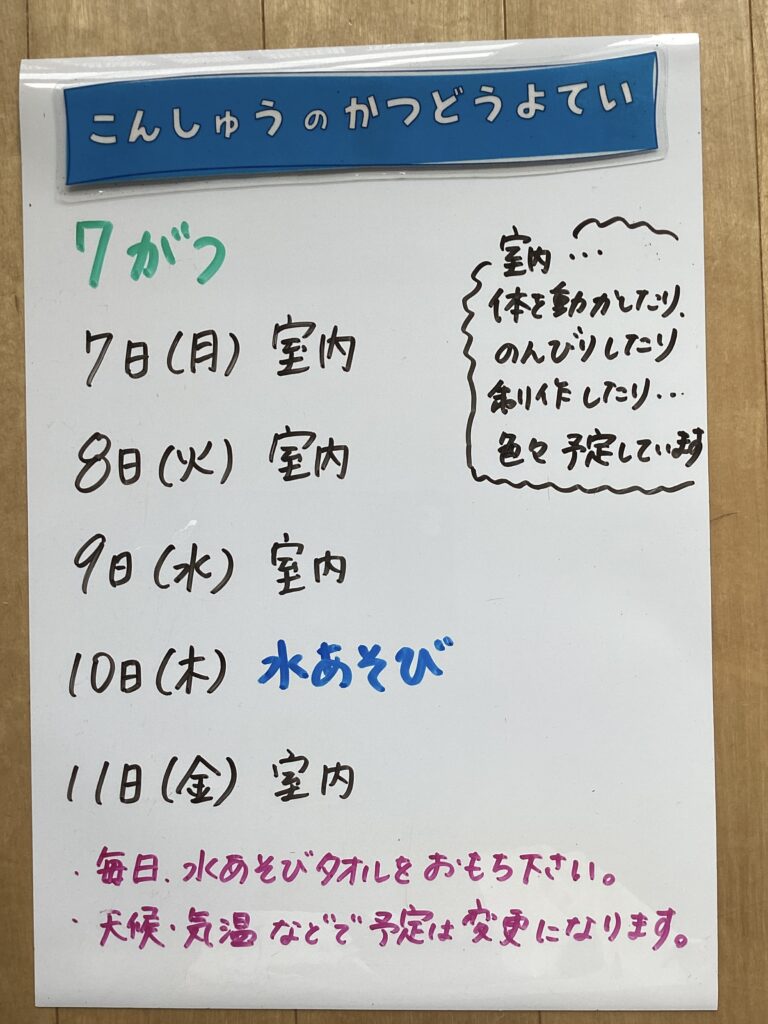 こんしゅうのかつどうよてい
7がつ
7日(月) 室内
8日(火) 室内
9日(水) 室内
10日(木) 水あそび
11日(金) 室内
室内…
体を動かしたり、
のんびりしたり
制作したり…
色々予定しています
・毎日、水あそびタオルをおもち下さい。
・天候・気温などで予定は変更になります。